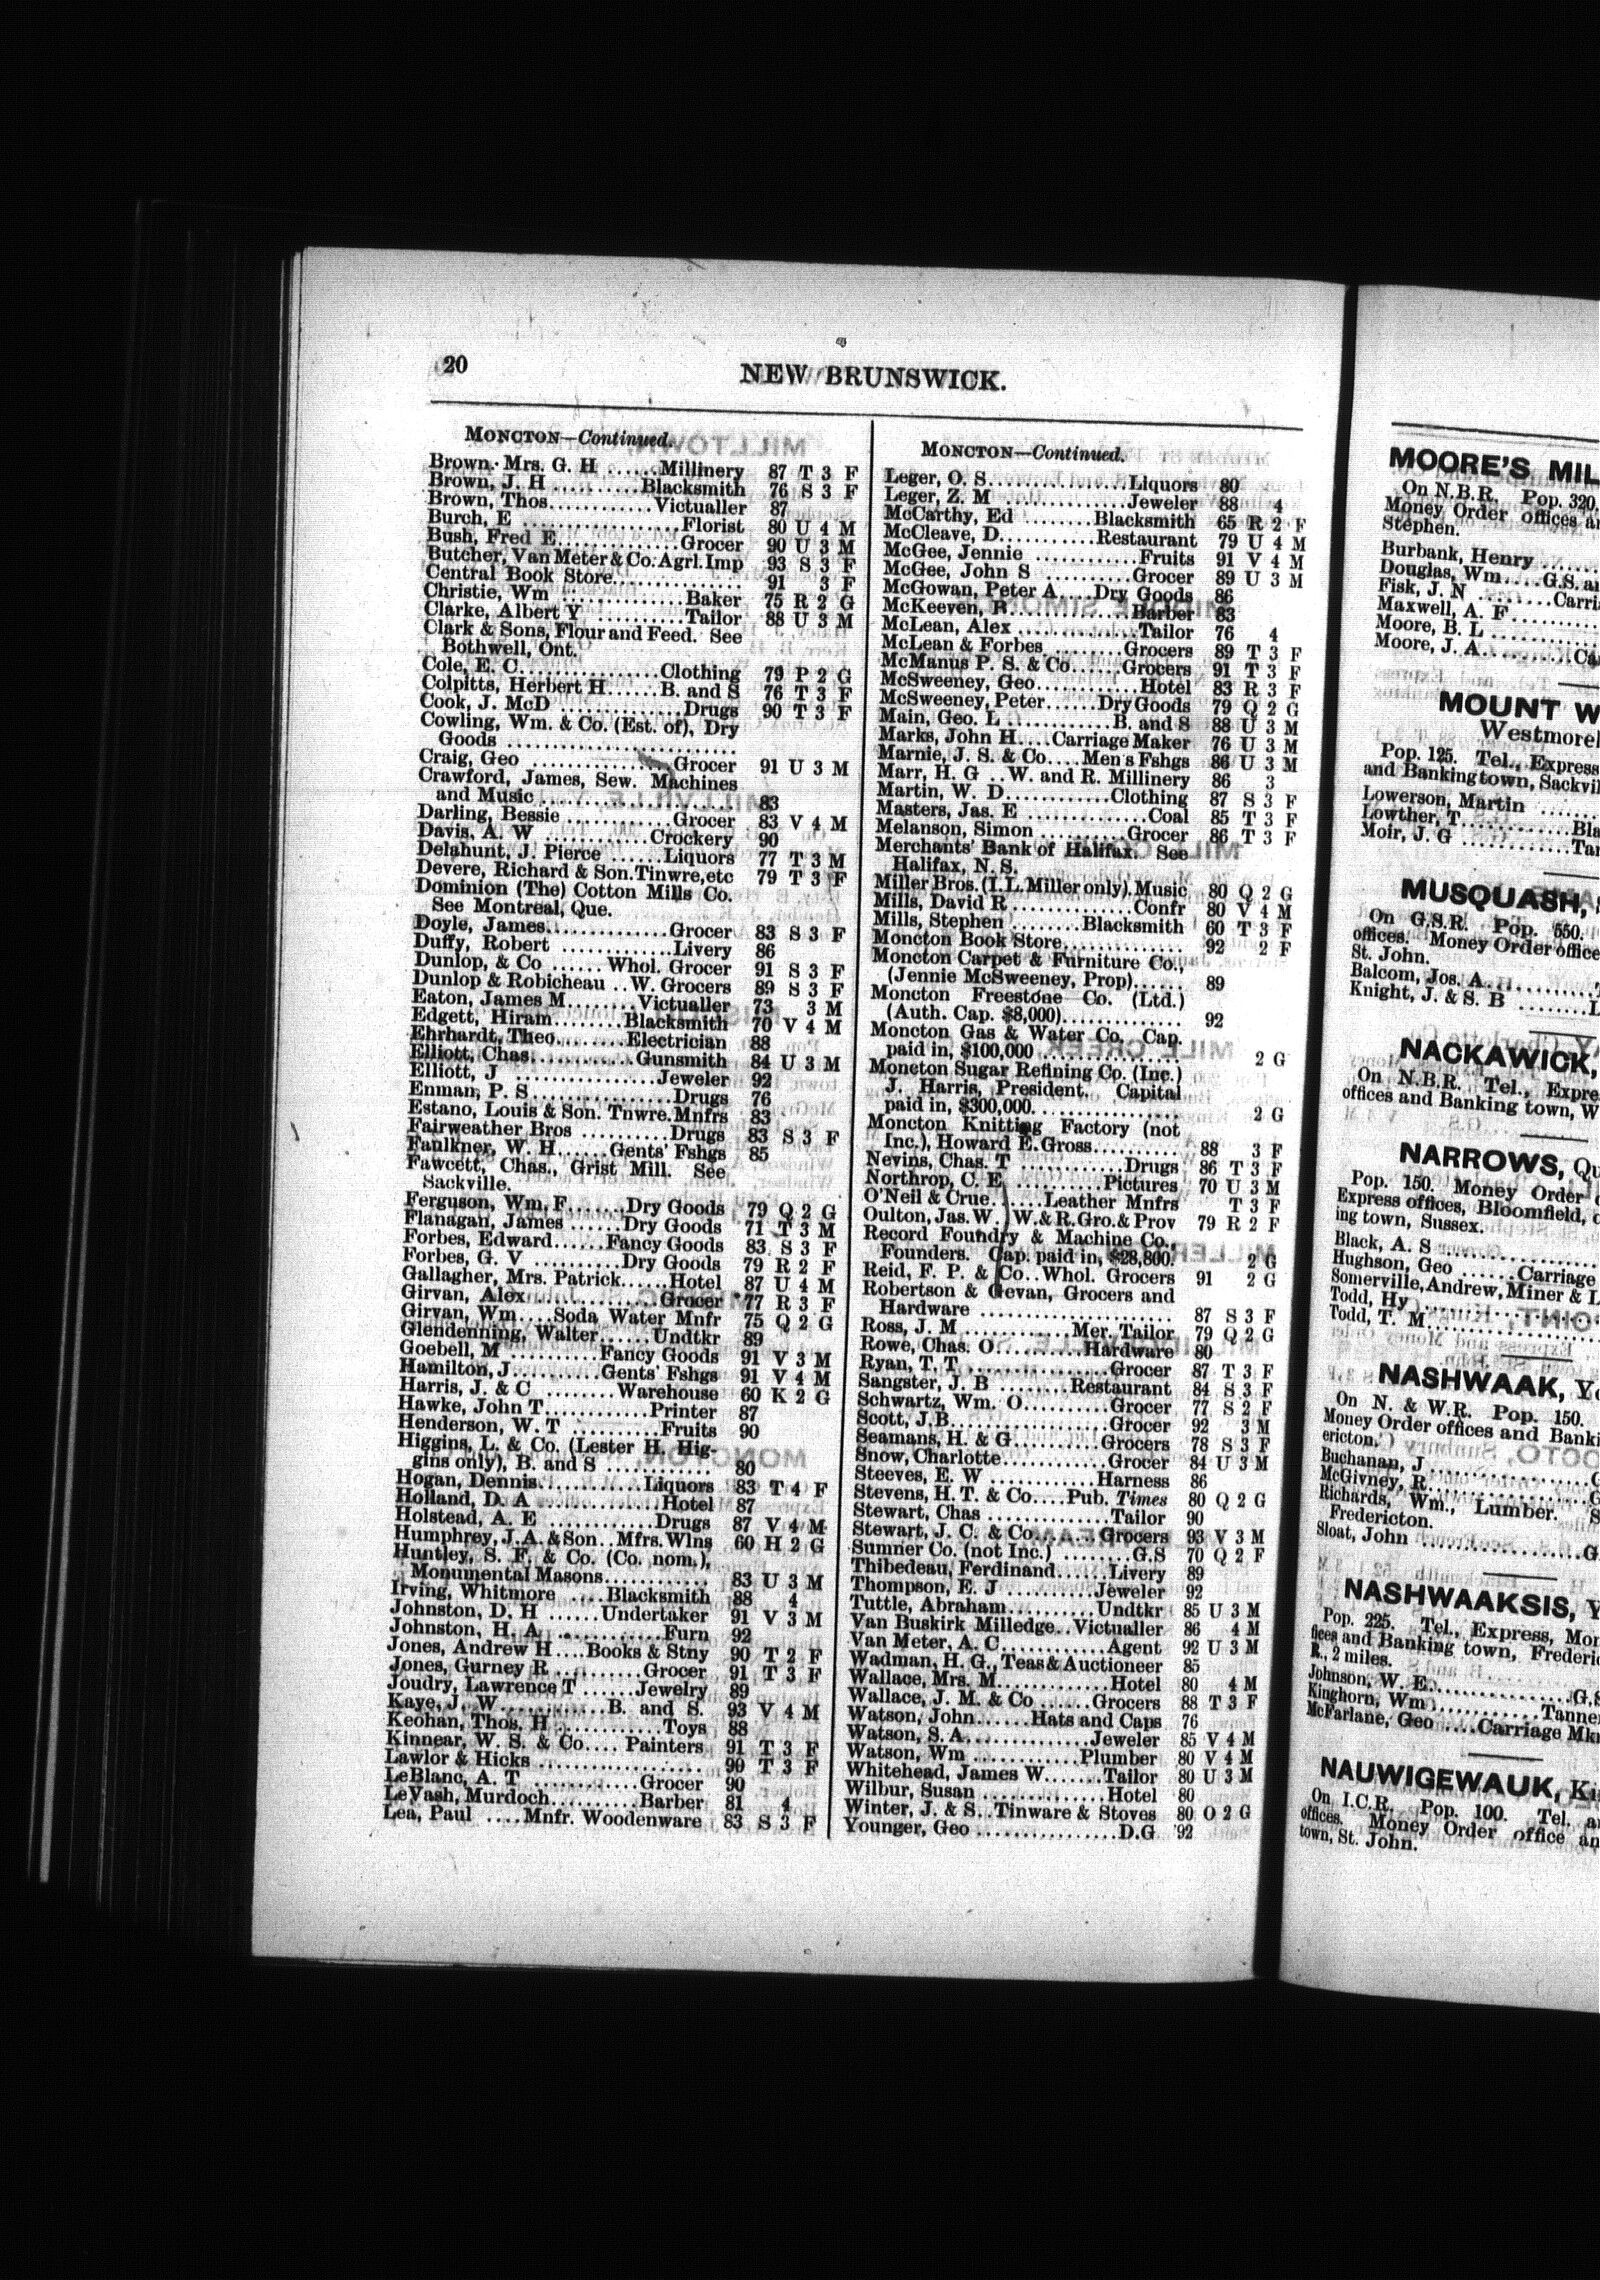 20
NEW BRUNSWICK.
MONCTON—Continued.
Brown, Mrs. G. H ......Millinery 87 T 3 F
Brown, J. H..........Blacksmith 76 S 3 F
Brown, Thos............Victualler 87
Burch, E ..................Florist 80 U 4 M
Bush, Fred E..............Grocer 90 U 3 M
Butcher, Van Meter & Co. Agrl. Imp 93 S 3 F
Central Book Store............... 91 3 F
Christie, Wm ..............Baker 75 R 2 G
Clarke, Albert Y ..........Tailor 88 U 3 M
Clark & Sons, Flour and Feed. See
Bothwell, Ont.
Cole, E. C................Clothing 79 P 2 G
Colpitts, Herbert H......B. and S 76 T 3 F
Cook, J. McD ..............Drugs 90 T 3 F
Cowling, Wm. & Co. (Est. of), Dry
Goods ..........................
Craig, Geo ................Grocer 91 U 3 M
Crawford, James, Sew. Machines
and Music ..................... 83
Darling, Bessie ............Grocer 83 V 4 M
Davis, A. W ............Crockery 90
Delahunt, J. Pierce ......Liquors 77 T 3 M
Devere, Richard & Son. Tinwre, etc 79 T 3 F
Dominion (The) Cotton Mills Co.
See Montreal, Que.
Doyle, James..............Grocer 83 S 3 F
Duffy, Robert .............Livery 86
Dunlop, & Co ......Whol. Grocer 91 S 3 F
Dunlop & Robicheau ..W. Grocers 89 S 3 F
Eaton, James M........Victualler 73 3 M
Edgett, Hiram........Blacksmith 70 V 4 M
Ehrhardt, Theo........Electrician 88
Elliott, Chas............Gunsmith 84 U 3 M
Elliott, J ................Jeweler 92
Enman, P. S................Drugs 76
Estano, Louis & Son. Tnwre. Mnfrs 83
Fairweather Bros ..........Drugs 83 S 3 F
Faulkner, W. H......Gents' Fshgs 85
Fawcett, Chas., Grist Mill. See
Sackville.
Ferguson, Wm. F.......Dry Goods 79 Q 2 G
Flanagan, James ......Dry Goods 71 T 3 M
Forbes, Edward......Fancy Goods 83 S 3 F
Forbes, G. V ..........Dry Goods 79 R 2 F
Gallagher, Mrs. Patrick......Hotel 87 U 4 M
Girvan, Alex ..............Grocer 77 R 3 F
Girvan, Wm....Soda Water Mnfr 75 Q 2 G
Glendenning, Walter......Undtkr 89
Goebell, M ..........Fancy Goods 91 V 3 M
Hamilton, J..........Gents' Fshgs 91 V 4 M
Harris, J. & C ........Warehouse 60 K 2 G
Hawke, John T............Printer 87
Henderson, W. T ..........Fruits 90
Higgins, L. & Co. (Lester H. Hig-
gins only), B. and S ............ 80
Hogan, Dennis............Liquors 83 T 4 F
Holland, D. A ..............Hotel 87
Holstead, A. E ............Drugs 87 V 4 M
Humphrey, J. A. & Son..Mfrs. Wlns 60 H 2 G
Huntley, S. F. & Co. (Co. nom.),
Monumental Masons............ 83 U 3 M
Irving, Whitmore ....Blacksmith 88 4
Johnston, D. H ......Undertaker 91 V 3 M
Johnston, H. A ............Furn 92
Jones, Andrew H....Books & Stny 90 T 2 F
Jones, Gurney R ..........Grocer 91 T 3 F
Joudry, Lawrence T ......Jewelry 89
Kaye, J. W............B. and S. 93 V 4 M
Keohan, Thos. H ............Toys 88
Kinnear, W. S. & Co.... Painters 91 T 3 F
Lawlor & Hicks .................. 90 T 3 F
LeBlanc, A. T ............Grocer 90
LeVash, Murdoch..........Barber 81 4
Lea, Paul ....Mnfr. Woodenware 83 S 3 F
MONCTON—Continued.
Leger, O. S................Liquors 80
Leger, Z. M ..............Jeweler 88 4
McCarthy, Ed ........Blacksmith 65 R 2 F
McCleave, D...........Restaurant 79 U 4 M
McGee, Jennie ............Fruits 91 V 4 M
McGee, John S ..........Grocer 89 U 3 M
McGowan, Peter A....Dry Goods 86
McKeeven, R..............Barber 83
McLean, Alex ..............Tailor 76 4
McLean & Forbes .........Grocers 89 T 3 F
McManus P. S. & Co......Grocers 91 T 3 F
McSweeney, Geo............Hotel 83 R 3 F
McSweeney, Peter......Dry Goods 79 Q 2 G
Main, Geo. L ............B. and S 88 U 3 M
Marks, John H....Carriage Maker 76 U 3 M
Marnie, J. S. & Co....Men's Fshgs 86 U 3 M
Marr, H. G ..W. and R. Millinery 86 3
Martin, W. D............Clothing 87 S 3 F
Masters, Jas. E ..............Coal 85 T 3 F
Melanson, Simon ..........Grocer 86 T 3 F
Merchants' Bank of Halifax. See
Halifax, N. S.
Miller Bros. (I. L. Miller only). Music 80 Q 2 G
Mills, David R ..............Confr 80 V 4 M
Mills, Stephen ........Blacksmith 60 T 3 F
Moncton Book Store.............. 92 2 F
Moncton Carpet & Furniture Co.,
(Jennie McSweeney, Prop)...... 89
Moncton Freestone Co. (Ltd.)
(Auth. Cap. $8,000)............. 92
Moncton Gas & Water Co. Cap.
paid in, $100,000 ............... 2 G
Moncton Sugar Refining Co. (Inc.)
J. Harris, President. Capital
paid in, $300,000................ 2 G
Moncton Knitting Factory (not
Inc.), Howard E. Gross.......... 88 3 F
Nevins, Chas. T ............Drugs 86 T 3 F
Northrop, C. E ..........Pictures 70 U 3 M
O'Neil & Crue......Leather Mnfrs T 3 F
Oulton, Jas. W. W. & R. Gro. & Prov 79 R 2 F
Record Foundry & Machine Co.,
Founders. Cap. paid in, $28,800. 2 G
Reid, F. P. & Co..Whol. Grocers 91 2 G
Robertson & Gevan, Grocers and
Hardware ...................... 87 S 3 F
Ross, J. M ............Mer. Tailor 79 Q 2 G
Rowe, Chas. O..........Hardware 80
Ryan, T. T ................Grocer 87 T 3 F
Sangster, J. B ........Restaurant 84 S 3 F
Schwartz, Wm. O..........Grocer 77 S 2 F
Scott, J. B..................Grocer 92 3 M
Seamans, H. & G..........Grocers 78 S 3 F
Snow, Charlotte............Grocer 84 U 3 M
Steeves, E. W ............Harness 86
Stevens, H. T. & Co....Pub. Times 80 Q 2 G
Stewart, Chas ..............Tailor 90
Stewart, J. C. & Co........Grocers 93 V 3 M
Sumner Co. (not Inc.) ........G.S 70 Q 2 F
Thibedeau, Ferdinand......Livery 89
Thompson, E. J ..........Jeweler 92
Tuttle, Abraham..........Undtkr 85 U 3 M
Van Buskirk Milledge..Victualler 86 4 M
Van Meter, A. C............Agent 92 U 3 M
Wadman, H. G., Teas & Auctioneer 85
Wallace, Mrs. M............Hotel 80 4 M
Wallace, J. M. & Co ......Grocers 88 T 3 F
Watson, John......Hats and Caps 76
Watson, S. A..............Jeweler 85 V 4 M
Watson, Wm ............Plumber 80 V 4 M
Whitehead, James W.......Tailor 80 U 3 M
Wilbur, Susan ..............Hotel 80
Winter, J. & S..Tinware & Stoves 80 O 2 G
Younger, Geo ................D.G '92
MOORE'S MIL
On N.B.R. Pop. 320.
Money Order offices a
Stephen.
Burbank, Henry ......
Douglas, Wm....G.S. a
Fisk, J. N ........Carri
Maxwell, A. F..........
Moore, B. L ............
Moore, J. A..........Ca
MOUNT W
Westmorel
Pop. 125. Tel., Express
and Banking town, Sackvil
Lowerson, Martin ......
Lowther, T............Bla
Moir, J. G ............Tar
MUSQUASH,
On G.S.R. Pop. 550.
offices. Money Order office
St. John.
Balcom, Jos. A..........
Knight, J. & S. B ........L
NACKAWICK,
On N.B.R. Tel., Expre
offices and Banking town, W
NARROWS, Qu
Pop. 150. Money Order o
Express offices, Bloomfield,
ing town, Sussex.
Black, A. S ..............
Hughson, Geo ......Carriage
Somerville, Andrew, Miner & L
Todd, Hy ................
Todd, T. M................
NASHWAAK, Yo
On N. & W.R. Pop. 150.
Money Order offices and Banki
ericton.
Buchanan, J ..............
McGivney, R..............G
Richards, Wm., Lumber. S
Fredericton.
Sloat, John ................G
NASHWAAKSIS, Y
Pop. 225. Tel., Express, Mon
fices and Banking town, Frederic
R., 2 miles.
Johnson, W. E..............G.S
Kinghorn, Wm ..........Tanner
McFarlane, Geo ....Carriage Mkr
NAUWIGEWAUK, Ki
On I.C.R. Pop. 100. Tel. a
offices. Money Order office an
town, St. John.